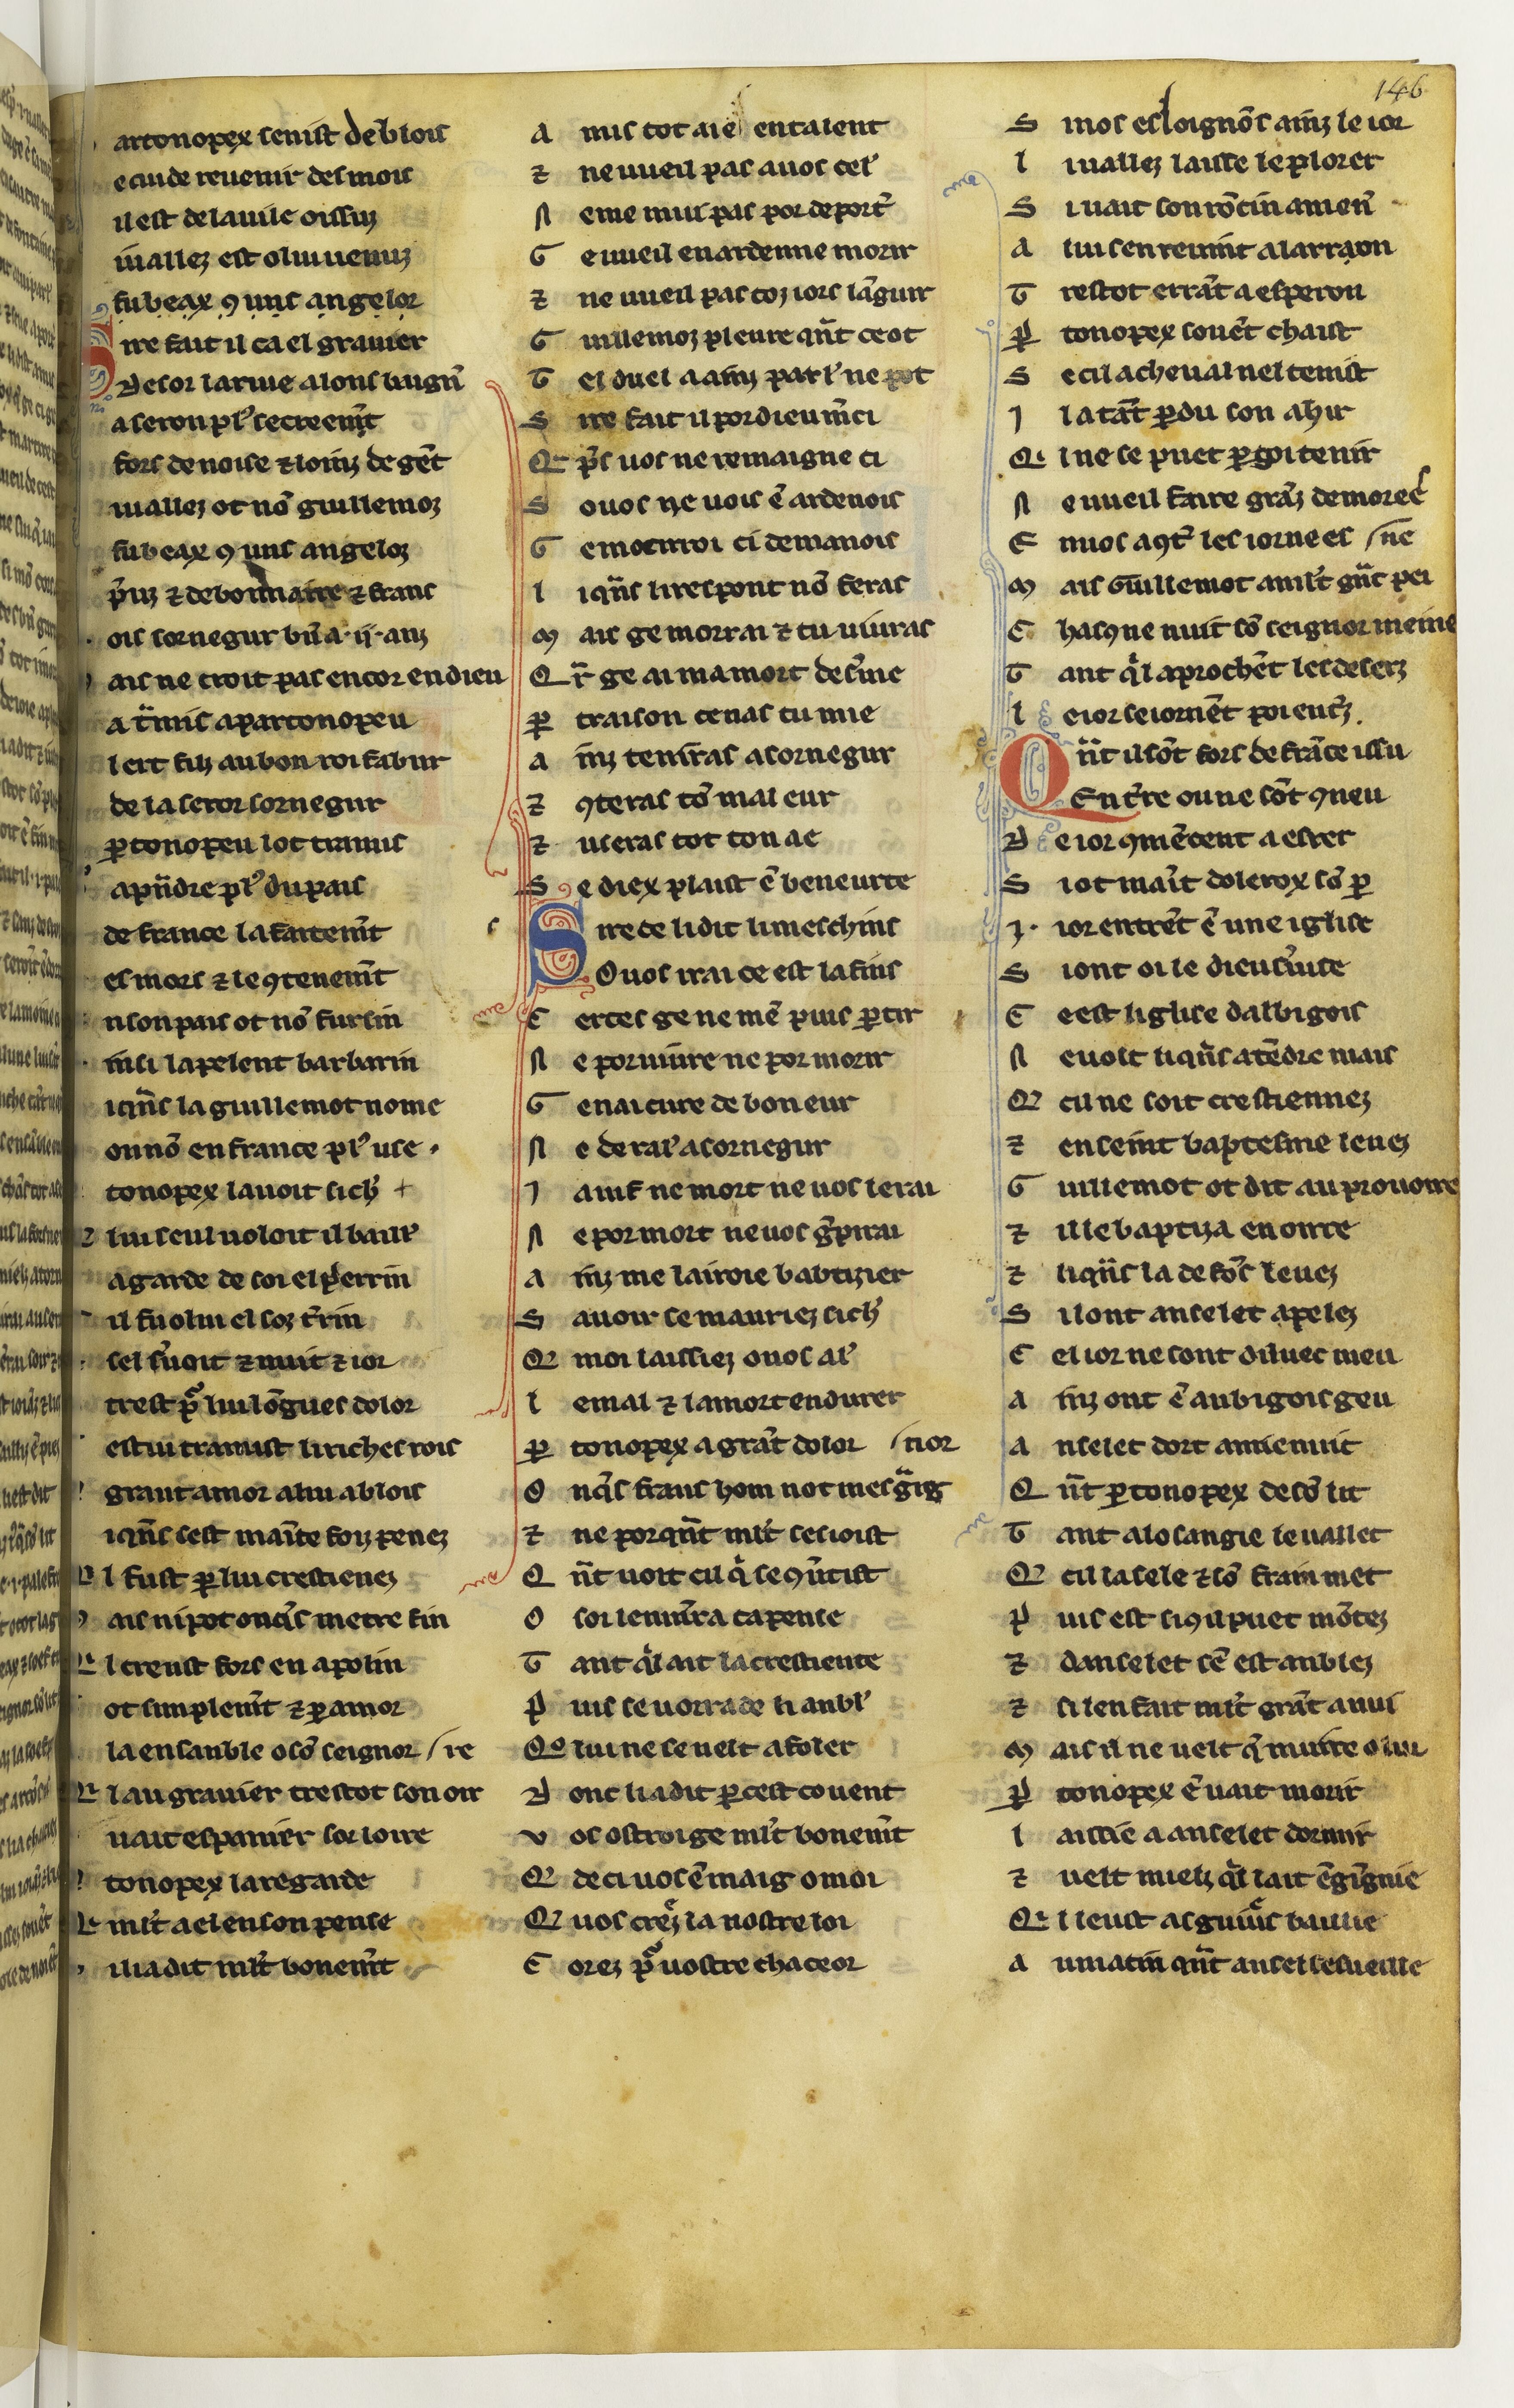 146
artonopex senist de blois
e cuide reuenir des mois
il est de la uile oissuz
i uallez est o lui uenuz
fu beax ꝯ uns angelor
Sire fait il ca el grauier
Desor larriue alons baignr̄
a seron pl᷒ secreem̄t
fors de noise ⁊ loinz de gēt
i uallez ot nō guillemoz
fu beax ꝯ uns angeloz
p̃uz ⁊ debonnaire ⁊ frans
ois sornegur bn̄ a .ij. anz
ais ne croit pas encor en dieu
a t̃mis a partonopeu
l ert filz au bon roi fabur
de la seror sornegur
ꝑtonopeu lot tramis
apn̄dre pl᷒ du pais
de france la faitem̄t
es mors ⁊ le ꝯtenem̄t
n son pais ot nō fursin
insi lapelent barbarin
i q̄ns la guillemot nome
on nō en france pl᷒ use .
tonopex lauoit si ch̃
lui seul uoloit il baill᷒
a garde de soi el ꝑerrin
il fu o lui el soz t̃rin
sel s̃uoit ⁊ nuit ⁊ ior
trest p̃ lui lōgues dolor
estui tramist li riches rois
grant amor a lui a blois
i q̄ns sest mainte foiz penez
l fust ꝑ lui crestienez
ais ni pot onq̃s metre fin
l creust fors en apolin
ot simplem̄t ⁊ ꝑ amor
la ensanble o sō seignor / re
l au grauier trestot son oir
uait espanier sor loire
tonopex la regarde
ml̃t a el en son pense
il i a dit ml̃t bonem̄t
A mis tot aie en talent
⁊ ne uueil pas a uos cel᷒
N e me muis pas por deport̃
G e uueil en ardenne morir
⁊ ne uueil pas toz iors lāguir
G uillemoz pleure qn̄t ce ot
T el duel a ainz parl᷒ ne pot
S ire fait il por dieu m̃ci
Q pͥs uos ne remaigne ci
S o uos ne uois ē ardenois
G e mocirroi ci demanois
L i q̄ns li respont nō feras
M ais ge morrai ⁊ tu uiuras
Q r̄ ge ai ma mort deseruie
Ꝑ traison tenas tu mie
A inz tenras a sornegur
⁊ ꝯteras tō mal eur
⁊ useras tot ton ae
S e diex plaist ē beneurte
Sire ce li dit li meschins
O uos irai ce est la fins
C ertes ge ne mē puis ꝑtir
N e por uiure ne por morir
G e nai cure de bon eur
N e de ral᷒ a sornegur
I a uif ne mort ne uos lerai
N e por mort ne uos g̃pirai
A inz me lairoie babtizier
S auoir se mauriez si ch̃
Q moi laissiez o uos al᷒
L e mal ⁊ la mort endurer
Ꝑ tonopex a grāt dolor / nor
O nq̃s frans hom not mes g̃ig
⁊ ne por qn̄t ml̃t sesioist
Q n̄t uoit cil qͥ se ꝯũtist
O soi lenmera ca pense
T ant qͥl ait la crestiente
P uis se uorra de li anbl᷒
Q o lui ne se uelt afoler
D onc li a dit ꝑ cest couent
V os ostroige ml̃t bonem̄t
Q de ci uos ē maig o moi
Q uos crez̃ la nostre loi
C orez p̃ uostre chaceor
S i nos esloignōs ainz le ior
L i uallez laisse le plorer
S i uait son rōcin amen̄
A lui sen reuint a larraon
T restot errāt a esperon
Ꝑ tonopex souēt chaist
S e cil a cheual nel tenist
I la tāt ꝑdu son ahir
Q l ne se puet ꝑ soi tenir
N e uueil faire grāz demorees
E n uos aꝯt̃ les iornees / ne
M ais Guillemot anuit gn̄s pei
C hascꝯne nuit cō seignor meine
T ant qͥl aprochēt les desers
L e ior seiornēt poi en t̃z
Q n̄t il sōt fors de frāce issu
En t̃re ou ne sōt ꝯneu
D e ior ꝯmēcent a esrer
S i ot maīt doleroz sō ꝑ
.I. ior entrēt ē une iglise
S i ont oi le dieu s̃uise
C e est liglise dalbigois
N e uolt li q̄ns atēdre mais
Q cil ne soit crestiennez
⁊ en seint baptesme leuez
G uillemot ot dit au prouoire
⁊ il le baptiza en oirre
⁊ li q̄ns la de fōs leuez
S i lont anselet apelez
C el ior ne sont dilluec meu
A inz ont ē aubigois geu
A nselet dort a mienuit
Q n̄t ꝑtonopex de sō lit
T ant a losangie le uallet
Q cil la sele ⁊ sō frain met
P uis est si qͥl puet mōtez
⁊ danselet sē est anblez
⁊ si len fait ml̃t grāt anui
M ais il ne uelt qͥ muire o lui
Ꝑ tonopex ē uait morir
L aissie a anselet dormir
⁊ uelt mielz qͥl lait ēgignie
Q l leust as guiur̃s baillie
A u matin qn̄t ansel sesueille